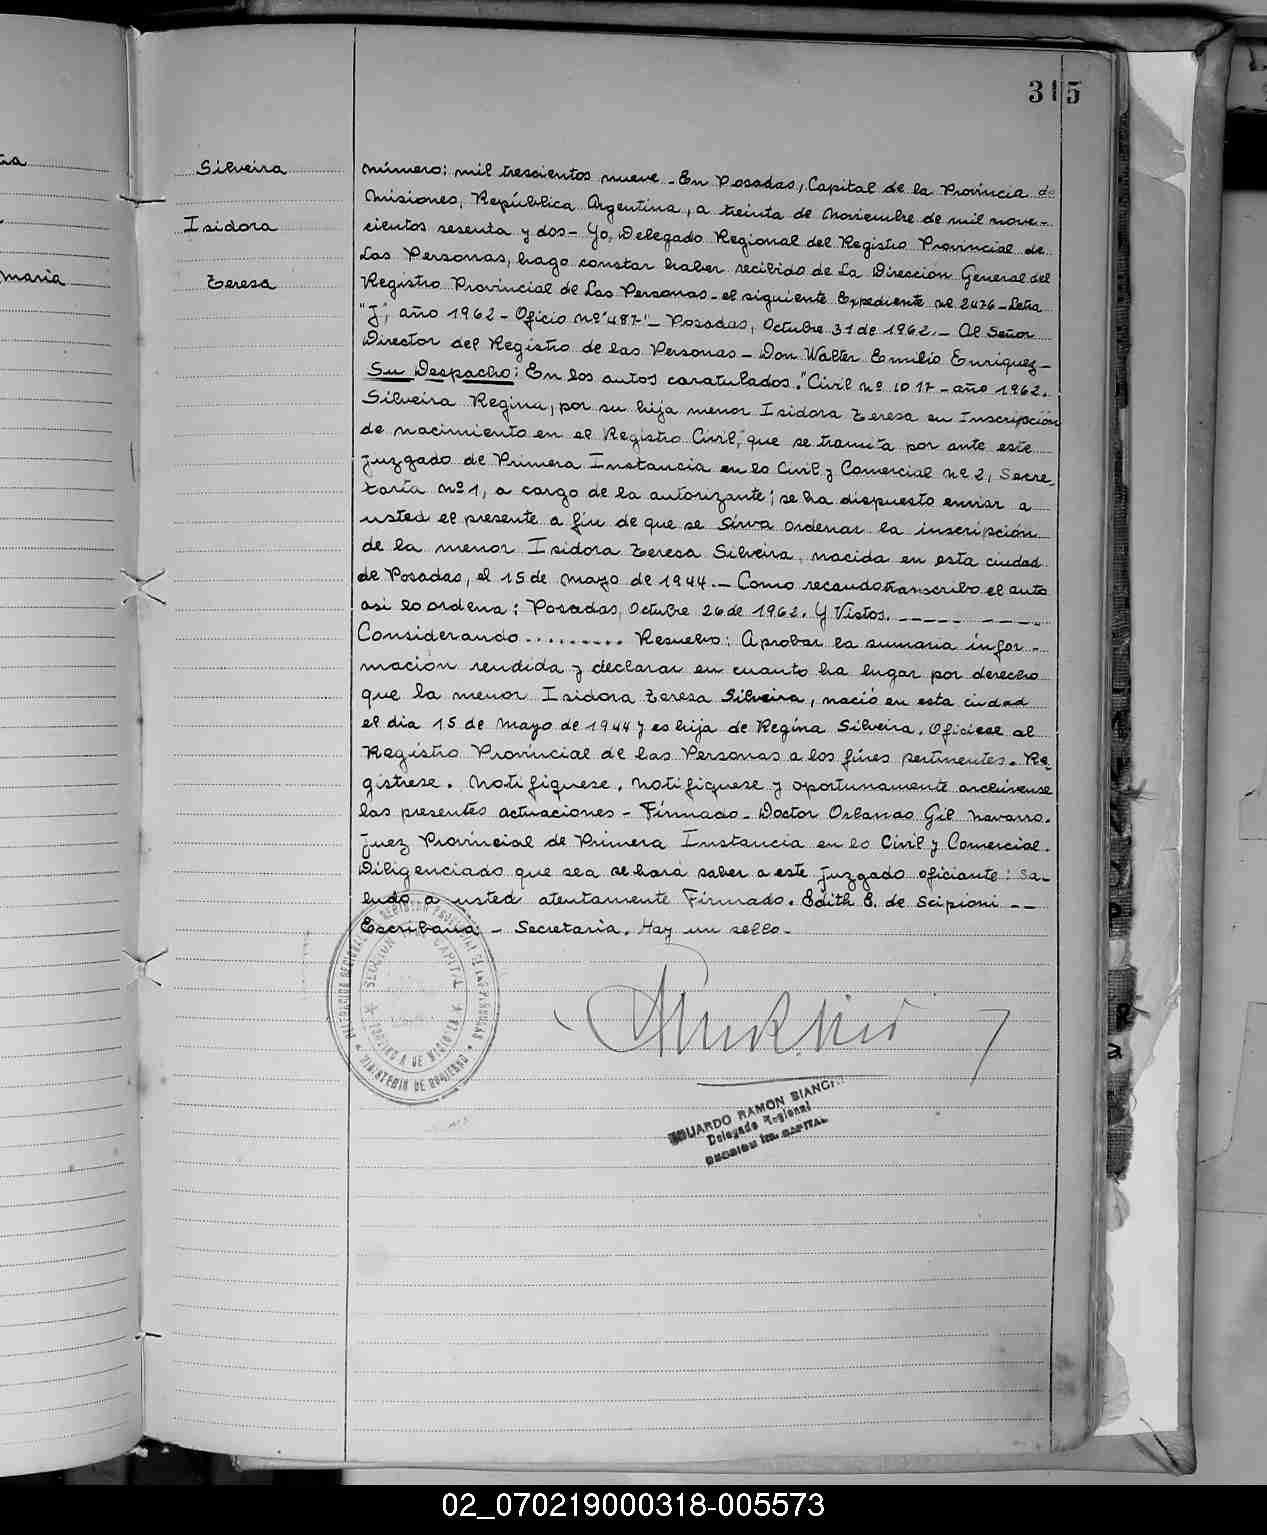 315
ia
maria
Silveira
Isidora
Teresa
Número: mil trescientos nueve - En Posadas, Capital de la Provincia de
Misiones, República Argentina, a treinta de Noviembre de mil nove-
cientos sesenta y dos - Yo, Delegado Regional del Registro Provincial de
Las Personas, hago constar haber recibido de La Dirección General del
Registro Provincial de Las Personas - el siguiente Expediente nº 2476 - Letra
"J", año 1962 - Oficio nº "487" - Posadas, Octubre 31 de 1962. - Al Señor
Director del Registro de las Personas - Don Walter Emilio Enriquez -
Su Despacho: En los autos caratulados. "Civil nº 1017 - año 1962.
Silveira Regina, por su hija menor Isidora Teresa en Inscripción
de nacimiento en el Registro Civil," que se tramita por ante este
juzgado de Primera Instancia en lo Civil y Comercial nº 2, Secre-
taria nº 1, a cargo de la autorizante; se ha dispuesto enviar a
usted el presente a fin de que se sirva ordenar la inscripción
de la menor Isidora Teresa Silveira, nacida en esta ciudad
de Posadas, el 15 de mayo de 1944. - Como recaudo transcribo el auto
asi lo ordena: Posadas, Octubre 26 de 1962. Y Vistos. - - - - -
Considerando ......... Resuelvo: Aprobar la sumaria infor-
mación rendida y declarar en cuanto ha lugar por derecho
que la menor Isidora Teresa Silveira, nació en esta ciudad
el dia 15 de Mayo de 1944 y es hija de Regina Silveira. Oficiese al
Registro Provincial de las Personas a los fines pertinentes. Re-
gistrese. Notifiquese. Notifiquese y oportunamente archivense
las presentes actuaciones - Firmado - Doctor Orlando Gil Navarro.
Juez Provincial de Primera Instancia en lo Civil y Comercial.
Diligenciado que sea se hará saber a este juzgado oficiante: Sa-
ludo a usted atentamente Firmado. Edith E. de Scipioni - -
Escribana - Secretaria. Hay un sello -
DELEGACION REGIONAL REGISTRO PROVINCIAL DE LAS PERSONAS
SECCION CAPITAL
PROVINCIA DE MISIONES
MINISTERIO DE GOBIERNO
EDUARDO RAMON BIANCHI
Delegado Regional
SECCION CAPITAL
02_070219000318-005573